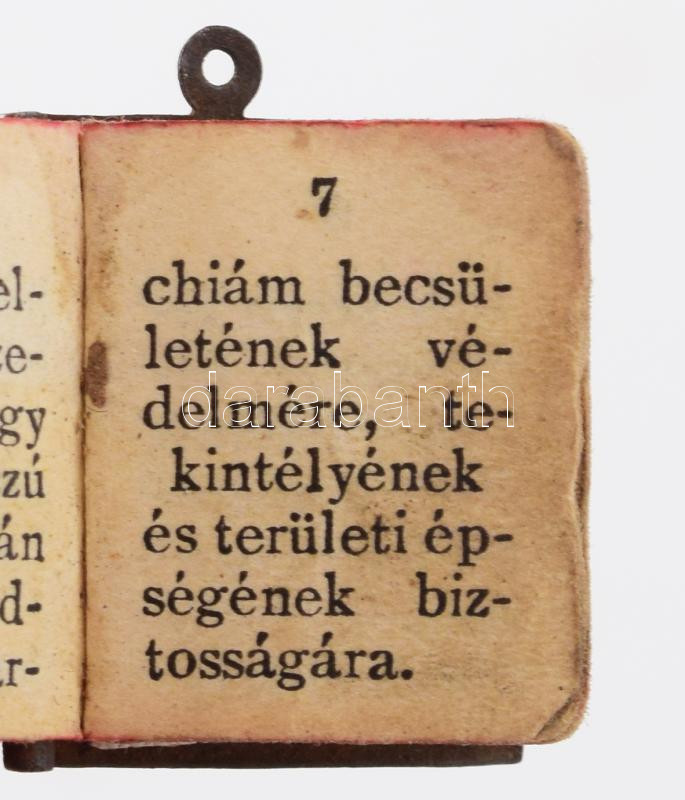 7
chiám becsü-
letének vé-
delmére, te-
kintélyének
és területi ép-
ségének biz-
tosságára.
darabanth